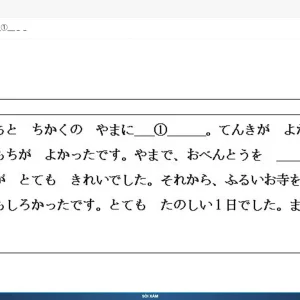 ①_ _ _
ちと ちかくの やまに___①______。てんきが よか
もちが よかったです。やまで、おべんとうを ____
が とても きれいでした。それから、ふるいお寺を
もしろかったです。とても たのしい１日でした。ま
SOI XÁM